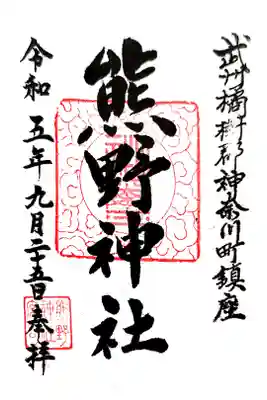 武州橘樹郡神奈川町鎮座
熊野神社
令和五年九月二十五日奉拝